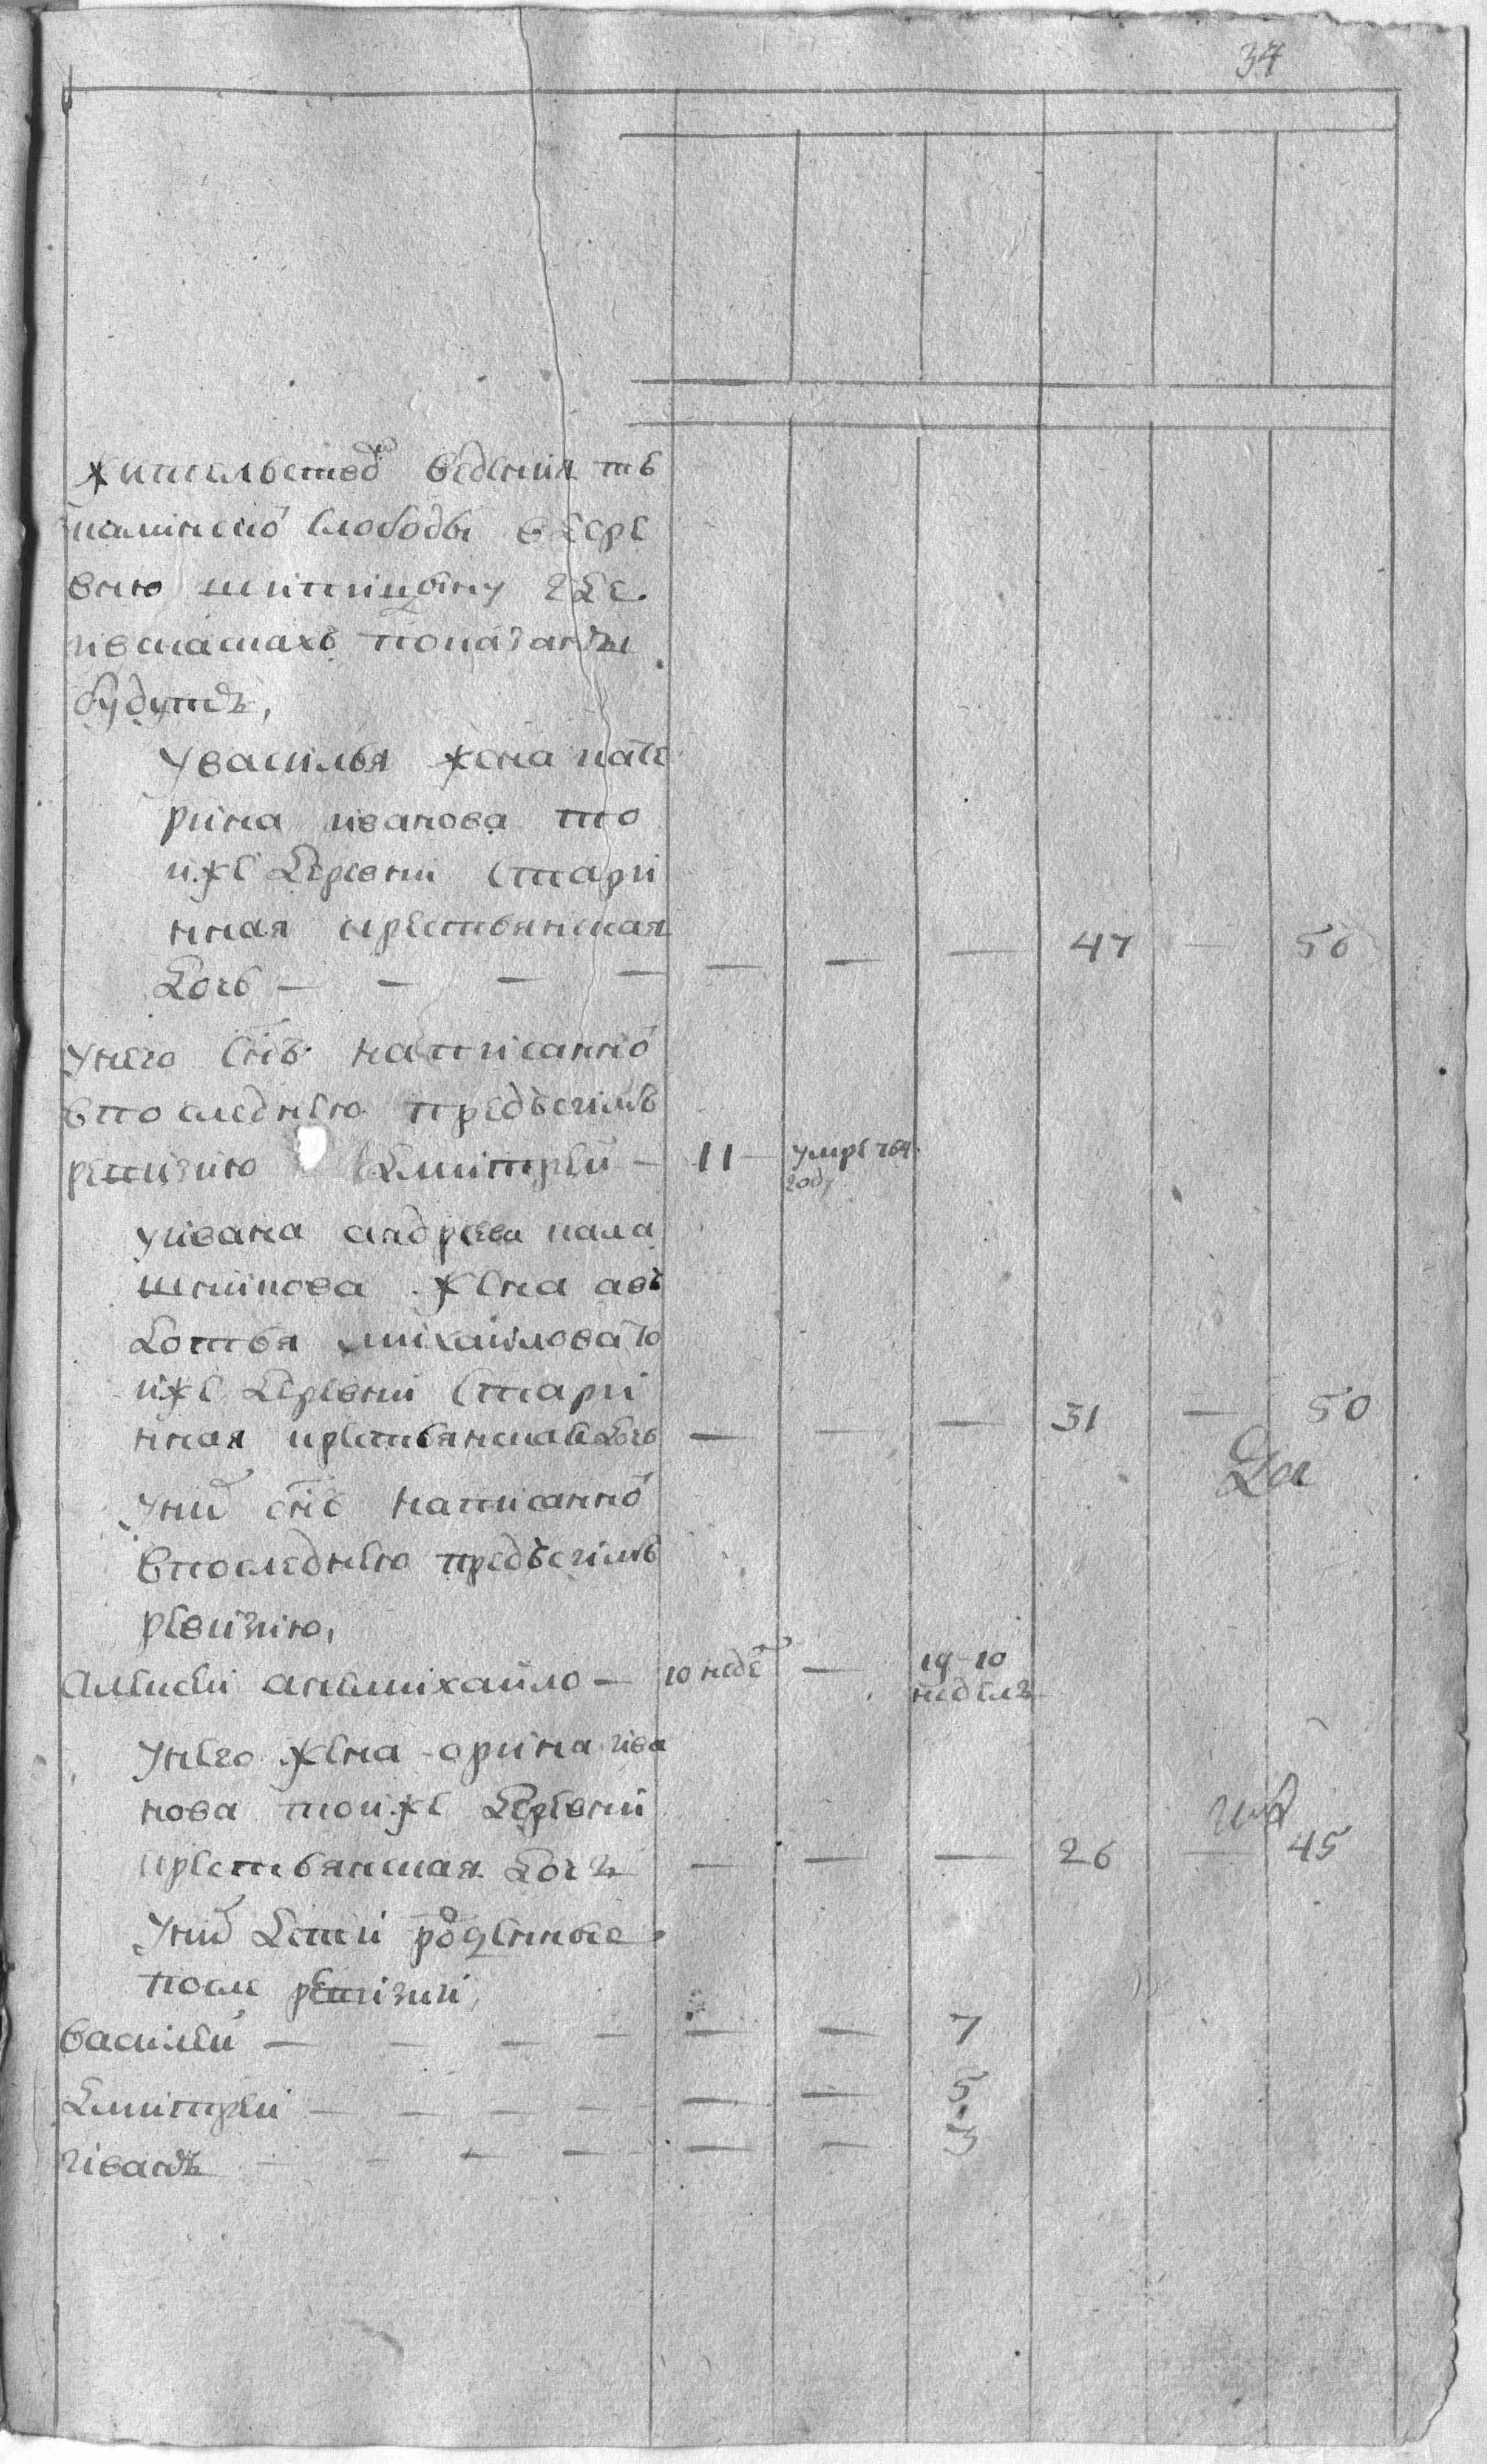 34
жителствомъ ведения те
каминской слободы в дере
вню шипицыну где
и в скаскахъ показаны
будутъ,
у василья жена кате
рина иванова то
и же деревни стари
нная крестьянская
дочь — — — — — — — 47 — 50
у него сынъ написанной
в последнею предъ симъ
ревизию дмитрей — 11 — умре
году
у ивана андреева кала
шникова жена авъ
дотья михайлова то
и же деревни стари
нная крестьянская дочь — — — 31 — 50
у ней сынъ написанной
в последнею предъ симъ
ревизию,
Алексей михайло — 10 неде — 19-10
неделъ
у него жена орина ива
нова тои же деревни
крестьянская дочь — — — 26 — 45
у ней дети рожденные
после ревизии,
василей — — — — — — 7
дмитрей — — — — — — 5
иванъ — — — — — — 3